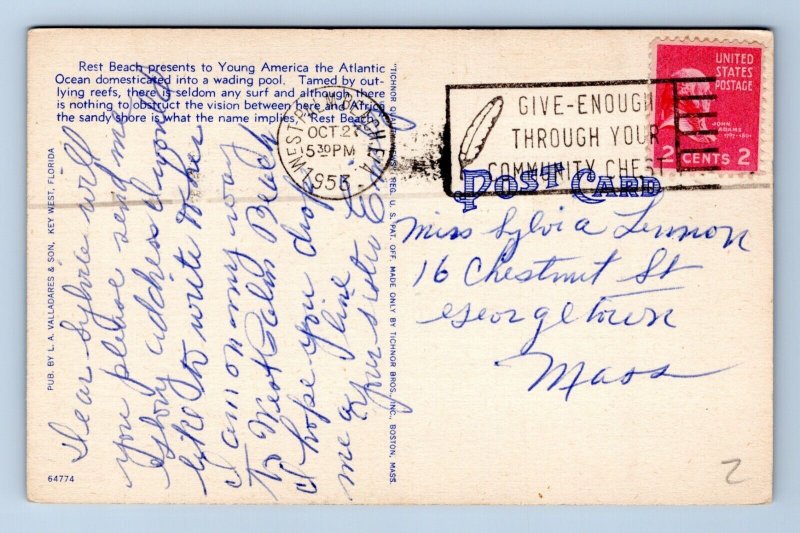 Rest Beach presents to Young America the Atlantic
Ocean domesticated into a wading pool. Tamed by out-
lying reefs, there is seldom any surf and although there
is nothing to obstruct the vision between here and Africa
the sandy shore is what the name implies, Rest Beach.
PUB. BY L. A. VALLADARES & SON, KEY WEST, FLORIDA
64774
Dear Sylvia will
you please send me
address I would
like to write to her
I am on my way
to West Palm Beach
I hope you drop
me a line
your sister
"TICHNOR QUALITY VIEWS," REG. U. S. PAT. OFF. MADE ONLY BY TICHNOR BROS., INC., BOSTON, MASS.
WEST PALM BEACH, FLA.
OCT 27
5 30 PM
1953
GIVE-ENOUGH
THROUGH YOUR
COMMUNITY CHEST
UNITED
STATES
POSTAGE
JOHN
ADAMS
1797-1801
2 CENTS 2
POST CARD
Miss Sylvia Lennon
16 Chestnut St
Georgetown
Mass
2